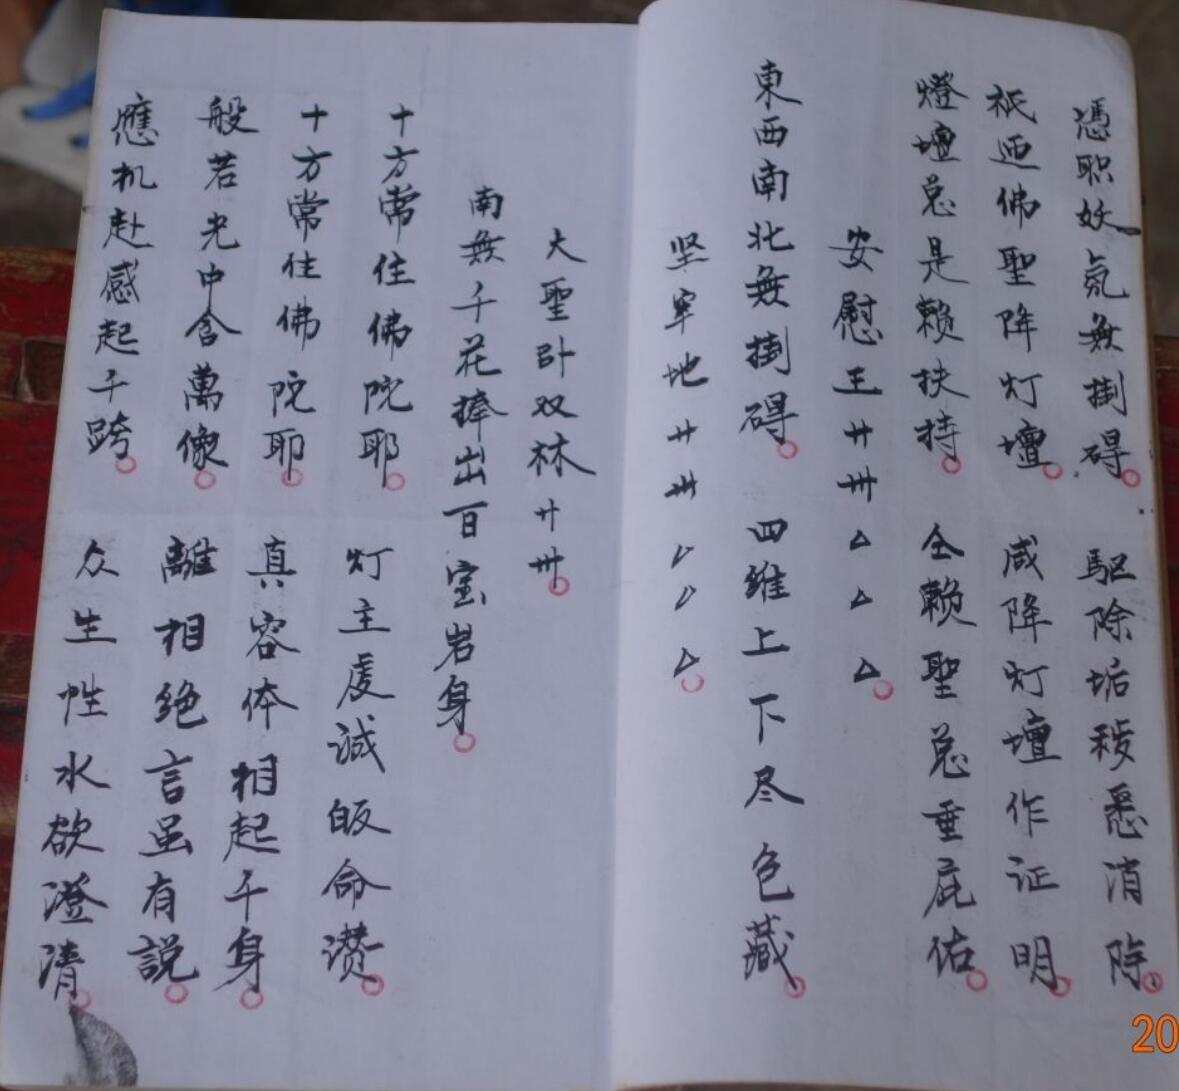 憑职妖氛無掛碍 驅除垢秽悉消除
祇迎佛聖降灯壇 咸降灯壇作证明
燈壇总是赖扶持 全赖聖总垂庇佑
安慰王廾卅△△△
東西南北無掛碍 四维上下尽色藏
坚牢地廾卅△△△
大聖卟双林廾卅
南無千花捧出百宝岩身
十方常住佛陀耶 灯主虔诚皈命讃
十方常住佛陀耶 真容体相起千身
般若光中含萬像 離相绝言虽有説
應机赴感起千跨 众生性水欲澄清
20